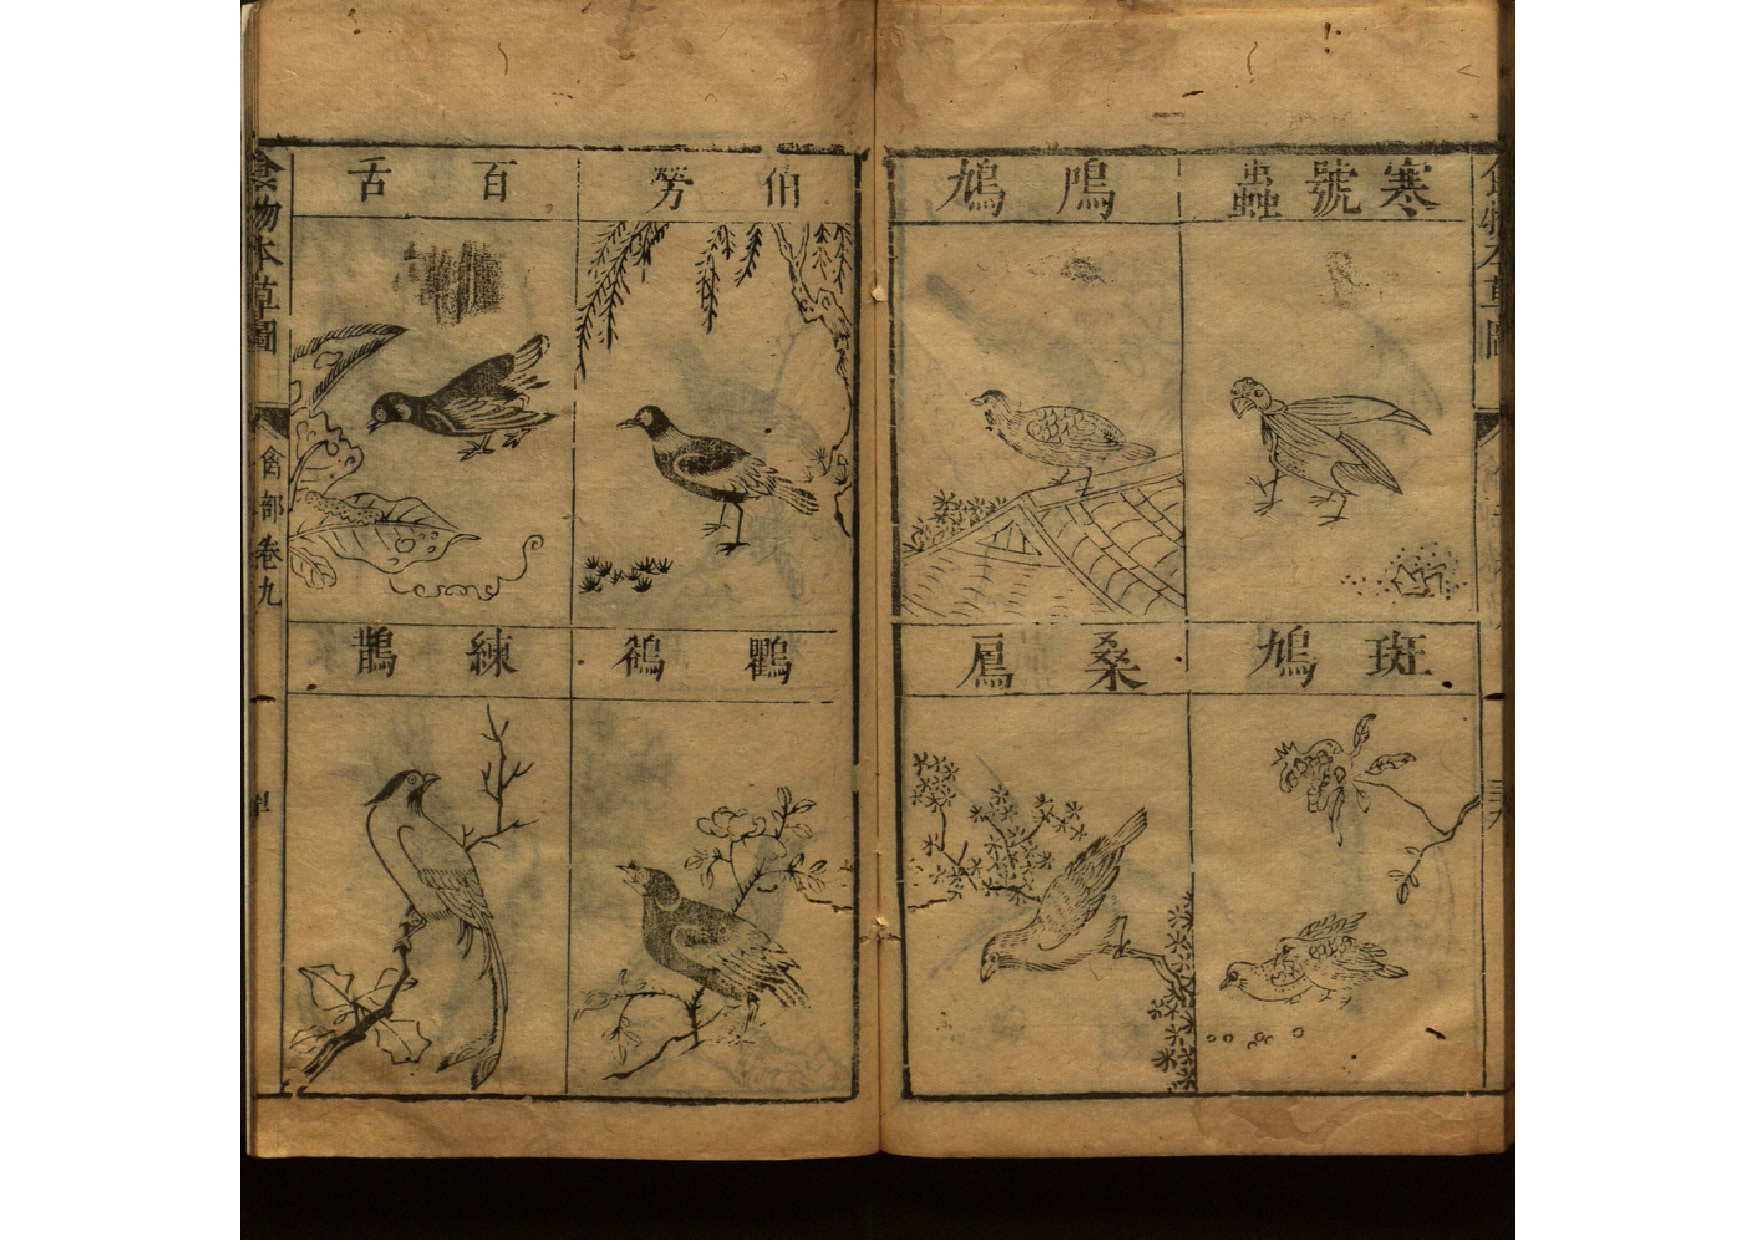 食物本草圖
寒號蟲
鳲鳩
斑鳩
桑鳸
伯勞
百舌
鸜鵒
練鵲
食物本草圖
禽部卷九